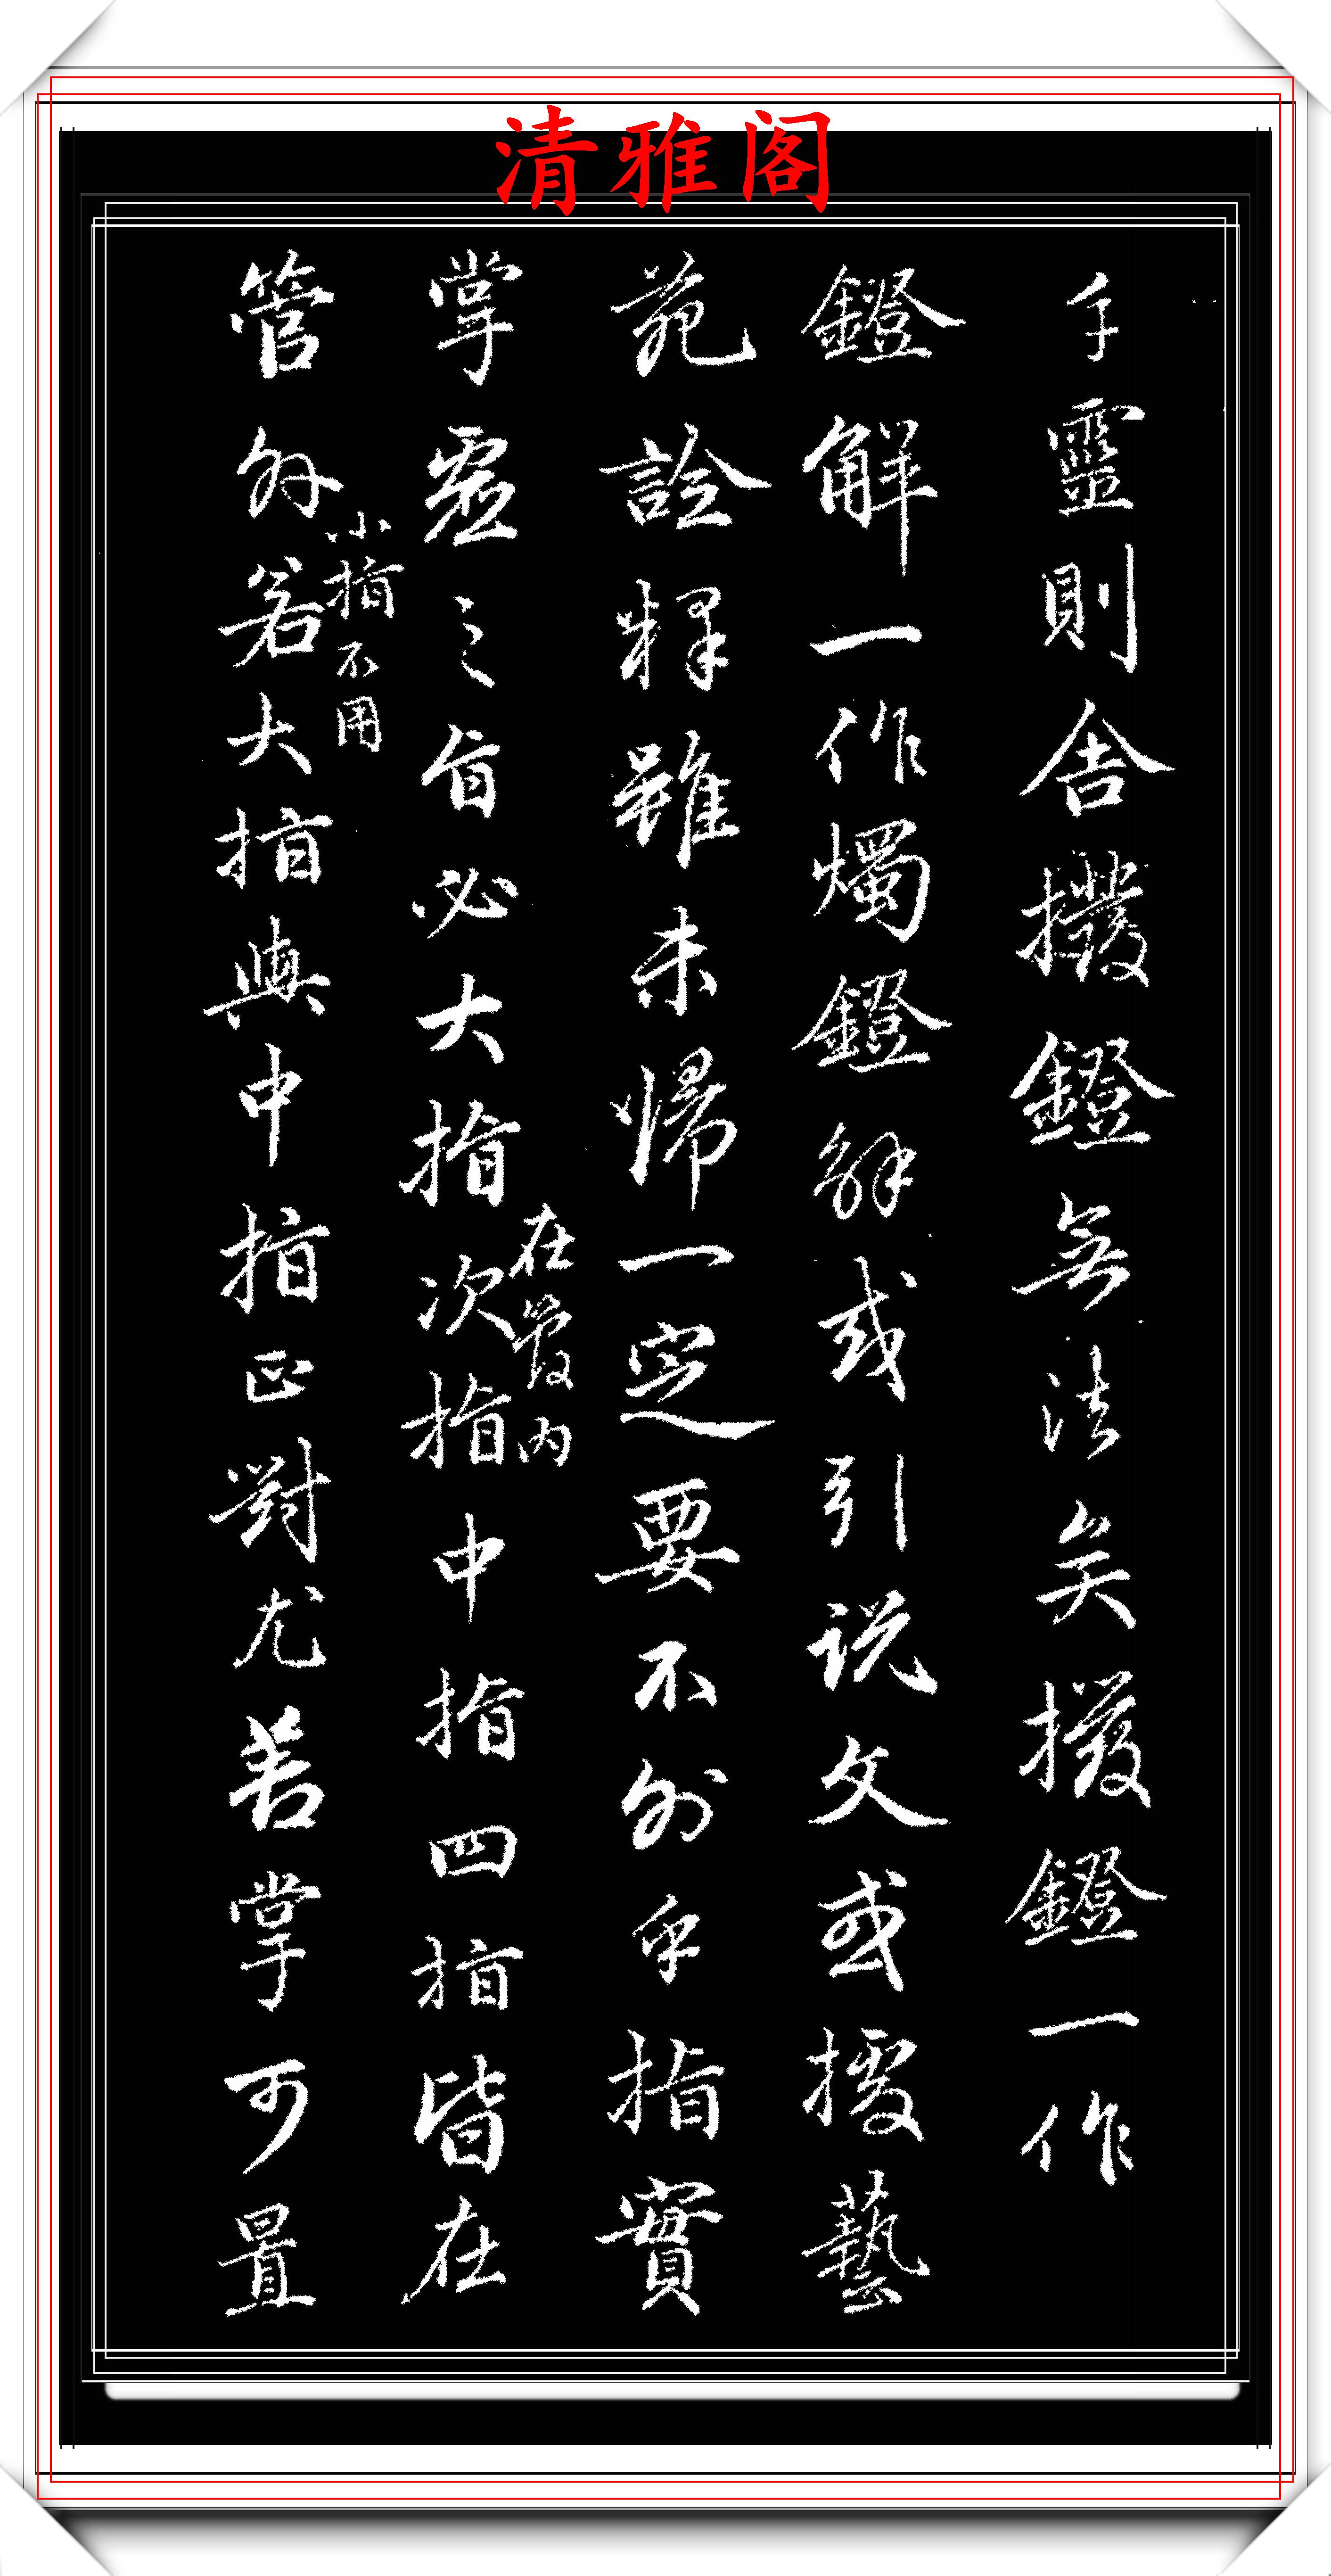 清雅阁
手靈則舍撥鐙無法矣撥鐙一作
鐙解一作燭鐙解或引说文或援藝
苑詮釋雖未歸一定要不外乎指實
掌虛之旨必大指次指中指四指皆在
在管內
管外若大指與中指正對尤善掌可置
小指不用